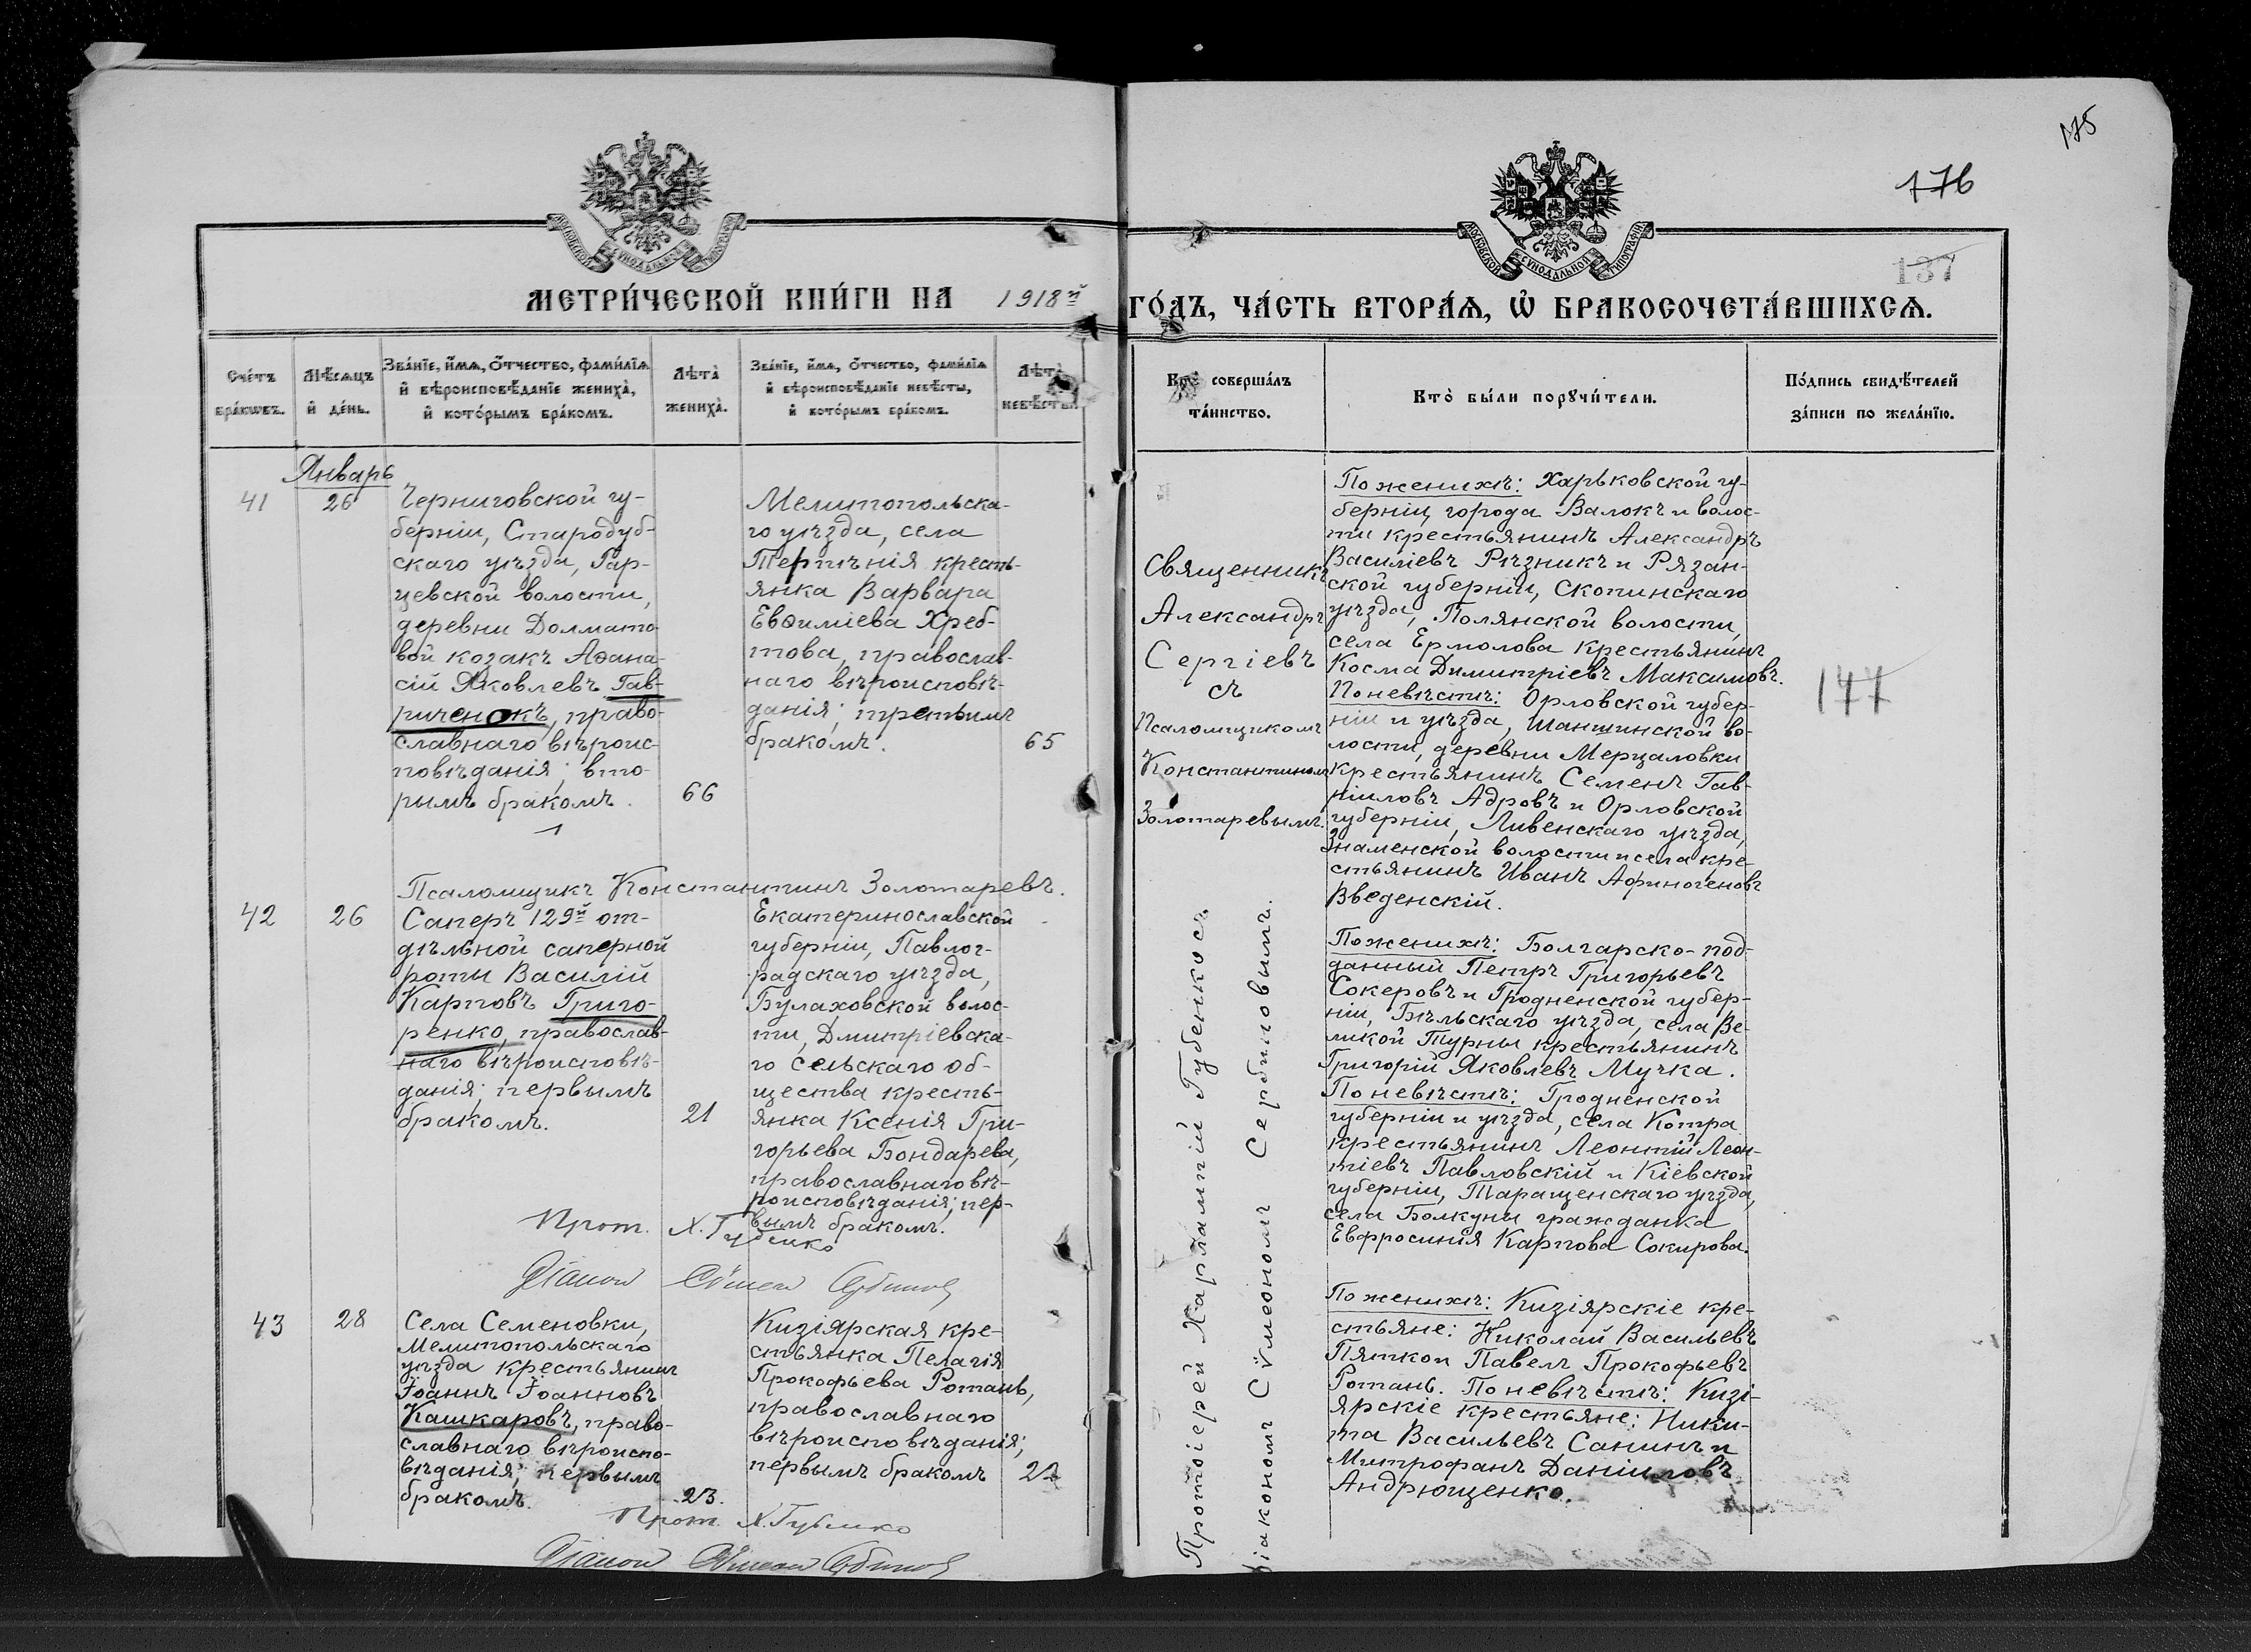 175
176
137
МОСКОВСКОЙ СѴНОДАЛЬНОЙ ТИПОГРАФІИ
МОСКОВСКОЙ СѴНОДАЛЬНОЙ ТИПОГРАФІИ
МЕТРИ́ЧЕСКОЙ КНИ́ГИ НА 1918й
ГО́ДЪ, ЧА́СТЬ ВТОРА́Ѧ, Ѡ҆ БРАКОСОЧЕТА́ВШИХСѦ.
Сче́тъ
бра́кѡвъ.
Мѣ́сѧцъ
и҆ де́нь.
Зва́нїе, и҆́мѧ, ѻ҆́тчество, фами́лїѧ
и҆ вѣроисповѣ́данїе жениха̀,
и҆ кото́рымъ бра́комъ.
Лѣта̀
жениха̀.
Зва́нїе, и҆́мѧ, ѻ҆́тчество, фами́лїѧ
и҆ вѣроисповѣ́данїе невѣ́сты,
и҆ кото́рымъ бра́комъ.
Лѣта̀
невѣ́сты.
Кто̀ соверша́лъ
та́инство.
Кто̀ бы́ли порꙋчи́тели.
По́дпись свидѣ́телей
за́писи по жела́нїю.
Январь
41
26
Черниговской гу-
берніи, Стародуб-
скаго уѣзда, Гар-
цевской волости,
деревни Долмато-
вой козакъ Аѳана-
сій Яковлевъ Гав-
риченокъ, право-
славнаго вѣроис-
повѣданія; вто-
рымъ бракомъ.
66
Мелитопольска-
го уѣзда, села
Терпѣнія кресть-
янка Варвара
Евѳиміева Хреб-
това, православ-
наго вѣроисповѣ-
данія; третьимъ
бракомъ.
65
Священникъ
Александръ
Сергіевъ
съ
Псаломщикомъ
Константиномъ
Золотаревымъ.
По женихѣ: Харьковской гу-
берніи, города Валокъ и волос-
ти крестьянинъ Александръ
Василіевъ Рѣзникъ и Рязан-
ской губерніи, Скопинскаго
уѣзда, Полянской волости,
села Ермолова крестьянинъ
Косма Димитріевъ Максимовъ.
По невѣстѣ: Орловской губер-
ніи и уѣзда, Шаншинской во-
лости, деревни Мерцаловки
крестьянинъ Семенъ Гав-
ріиловъ Адровъ и Орловской
губерніи, Ливенскаго уѣзда,
Знаменской волости и села кре-
стьянинъ Иванъ Афиногеновъ
Введенскій.
147
Псаломщикъ Константинъ Золотаревъ.
42
26
Саперъ 129й от-
дѣльной саперной
роты Василій
Карповъ Григо-
ренко, православ-
наго вѣроисповѣ-
данія; первымъ
бракомъ.
21
Екатеринославской
губерніи, Павлог-
радскаго уѣзда,
Булаховской волос-
ти, Дмитріевска-
го сельскаго об-
щества кресть-
янка Ксенія Гри-
горьева Бондарева,
православнаго вѣ-
роисповѣданія; пер-
вымъ бракомъ.
Протоіерей Харлампій Губенко съ
діакономъ Сѵмеономъ Сербиновымъ.
По женихѣ: Болгарско-под-
данный Петръ Григорьевъ
Сокеровъ и Гродненской губер-
ніи, Бѣльскаго уѣзда, села Ве-
ликой Турны крестьянинъ
Григорій Яковлевъ Мучка.
По невѣстѣ: Гродненской
губерніи и уѣзда, села Котра
крестьянинъ Леонтій Леон-
тіевъ Павловскій и Кіевской
губерніи, Таращенскаго уѣзда,
села Болкуны гражданка
Евфросинія Карпова Сокирова.
Прот. Х. Губенко
Діакон Сѵмеон Сербинов
43
28
Села Семеновки,
Мелитопольскаго
уѣзда крестьянинъ
Іоаннъ Іоанновъ
Кашкаровъ, право-
славнаго вѣроиспо-
вѣданія; первымъ
бракомъ.
23.
Кизіярская кре-
стьянка Пелагія
Прокофьева Ротань,
православнаго
вѣроисповѣданія;
первымъ бракомъ
22
По женихѣ: Кизіярскіе кре-
стьяне: Николай Васильевъ
Пяткои Павелъ Прокофьевъ
Ротань. По невѣстѣ: Кизі-
ярскіе крестьяне: Ники-
та Васильевъ Санинъ и
Митрофанъ Даніиловъ
Андрющенко.
Прот. Х. Губенко
Діакон Сѵмеон Сербинов